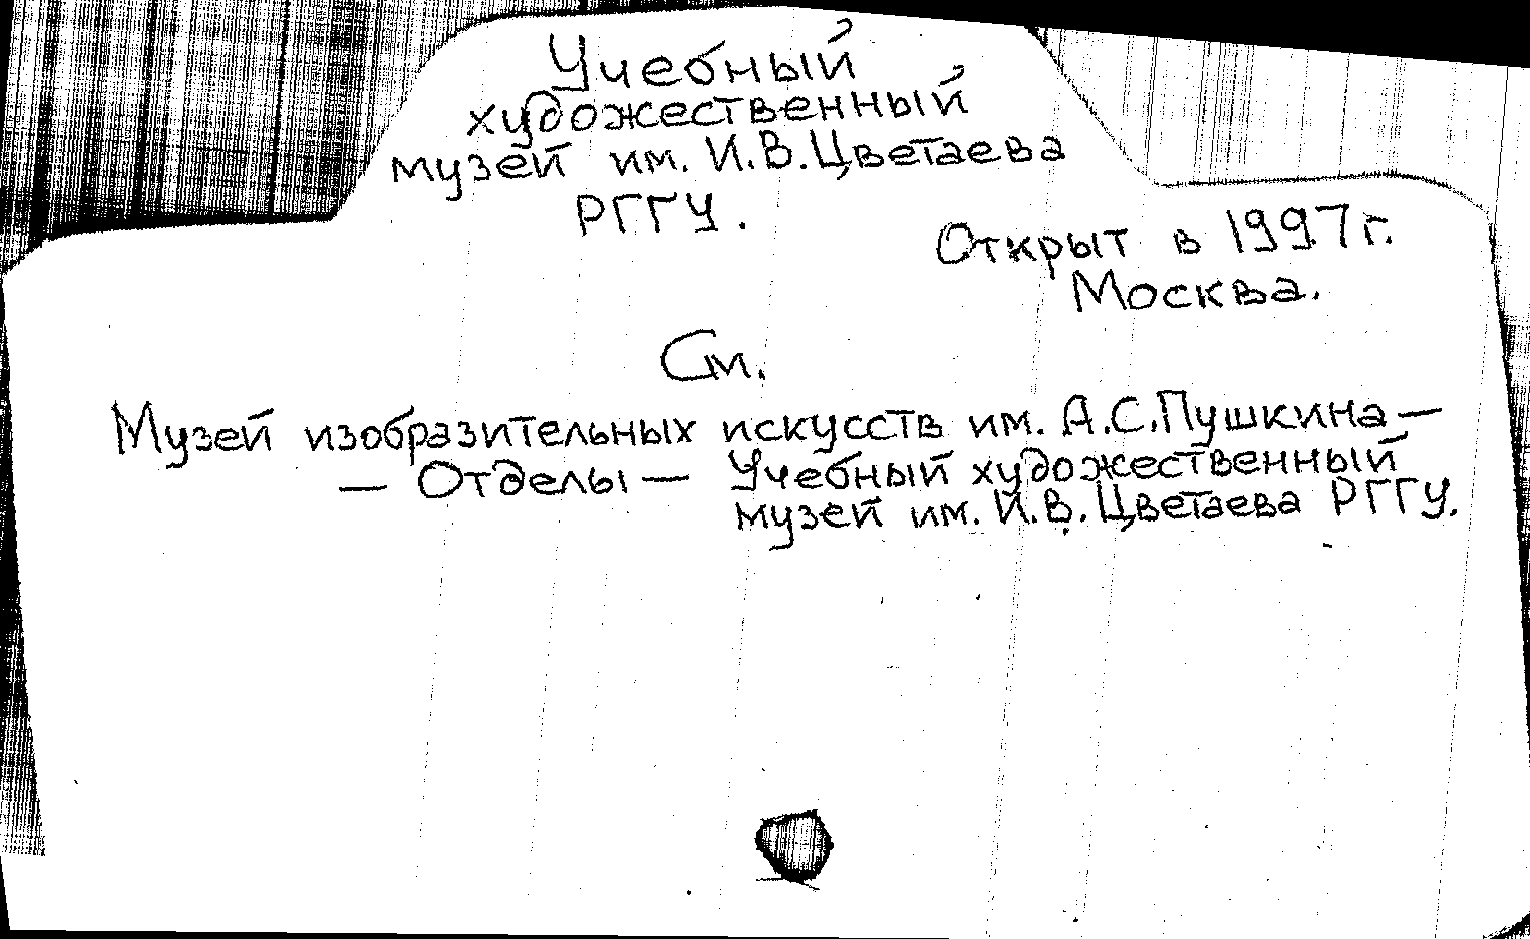 Учебный
художественный
музей им. И.В.Цветаева
РГГУ.
Открыт в 1997 г.
Москва.
См.
Музей изобразительных искусств им. А.С.Пушкина —
— Отделы — Учебный художественный
музей им. И.В.Цветаева РГГУ.